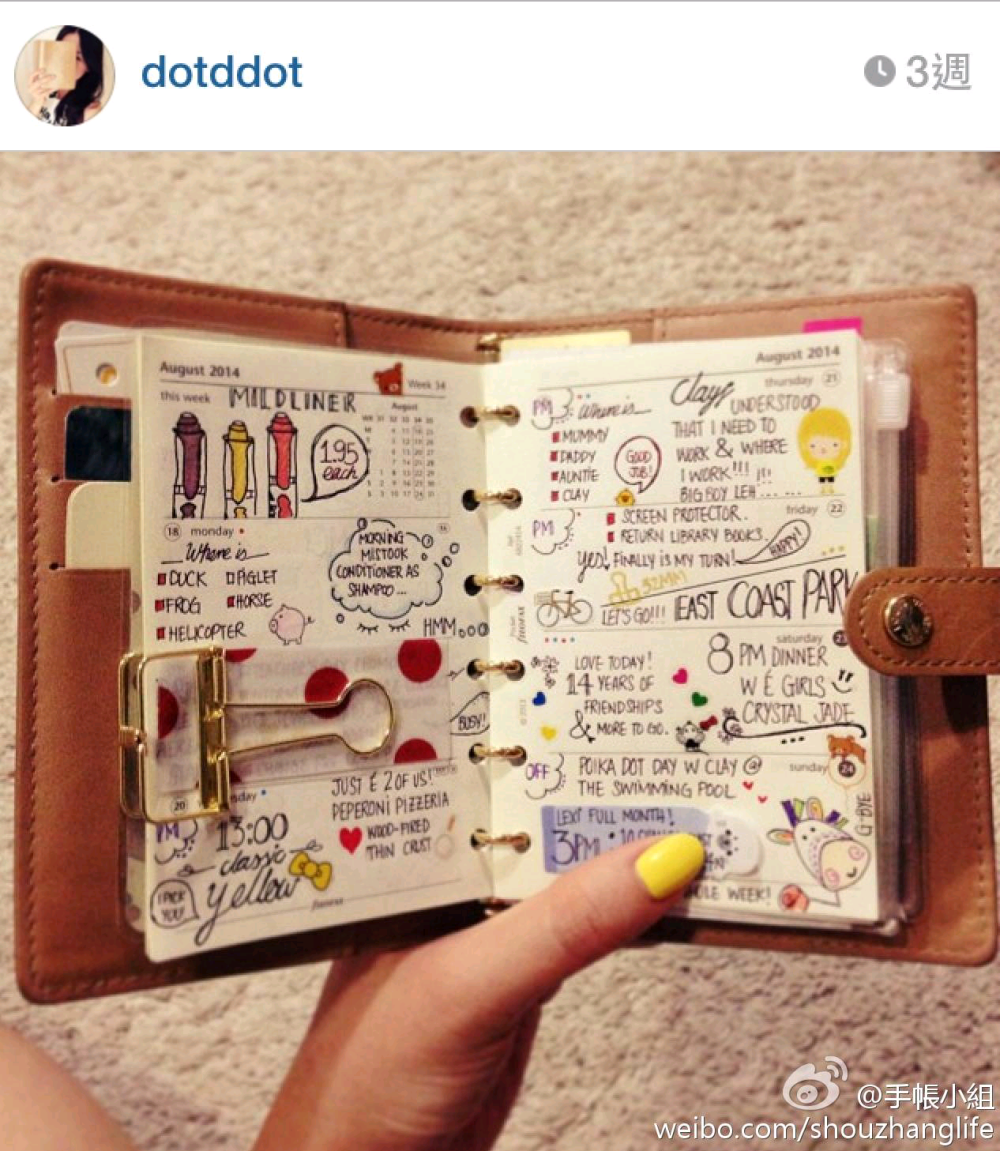 dotddot
3週
August 2014
Week 34
this week
MILDLINER
August
1.95
each
18 monday
Where is
DUCK PIGLET
FROG HORSE
HELICOPTER
MORNING
MISTOOK
CONDITIONER AS
SHAMPOO...
HMM...
BUSY!
20
JUST & 2 OF US!
PEPERONI PIZZERIA
WOOD-FIRED
THIN CRUST
PM
13:00
classic
yellow
I PICK
YOU!
August 2014
thursday 21
PM
Where is
MUMMY
DADDY
AUNTIE
CLAY
GOOD
JOB!
Clay
UNDERSTOOD
THAT I NEED TO
WORK & WHERE
I WORK!!! !!
BIG BOY LEH......
friday 22
PM
SCREEN PROTECTOR.
RETURN LIBRARY BOOKS.
yes! FINALLY IS MY TURN!
HAPPY!
LET'S GO!!! EAST COAST PARK
saturday 23
LOVE TODAY!
14 YEARS OF
FRIENDSHIPS
& MORE TO GO.
8 PM DINNER
W & GIRLS
CRYSTAL JADE
sunday 24
OFF
POLKA DOT DAY W CLAY @
THE SWIMMING POOL
G-BYE
LEXI FULL MONTH!
3PM
WEEK!
@手帳小組
weibo.com/shouzhanglife